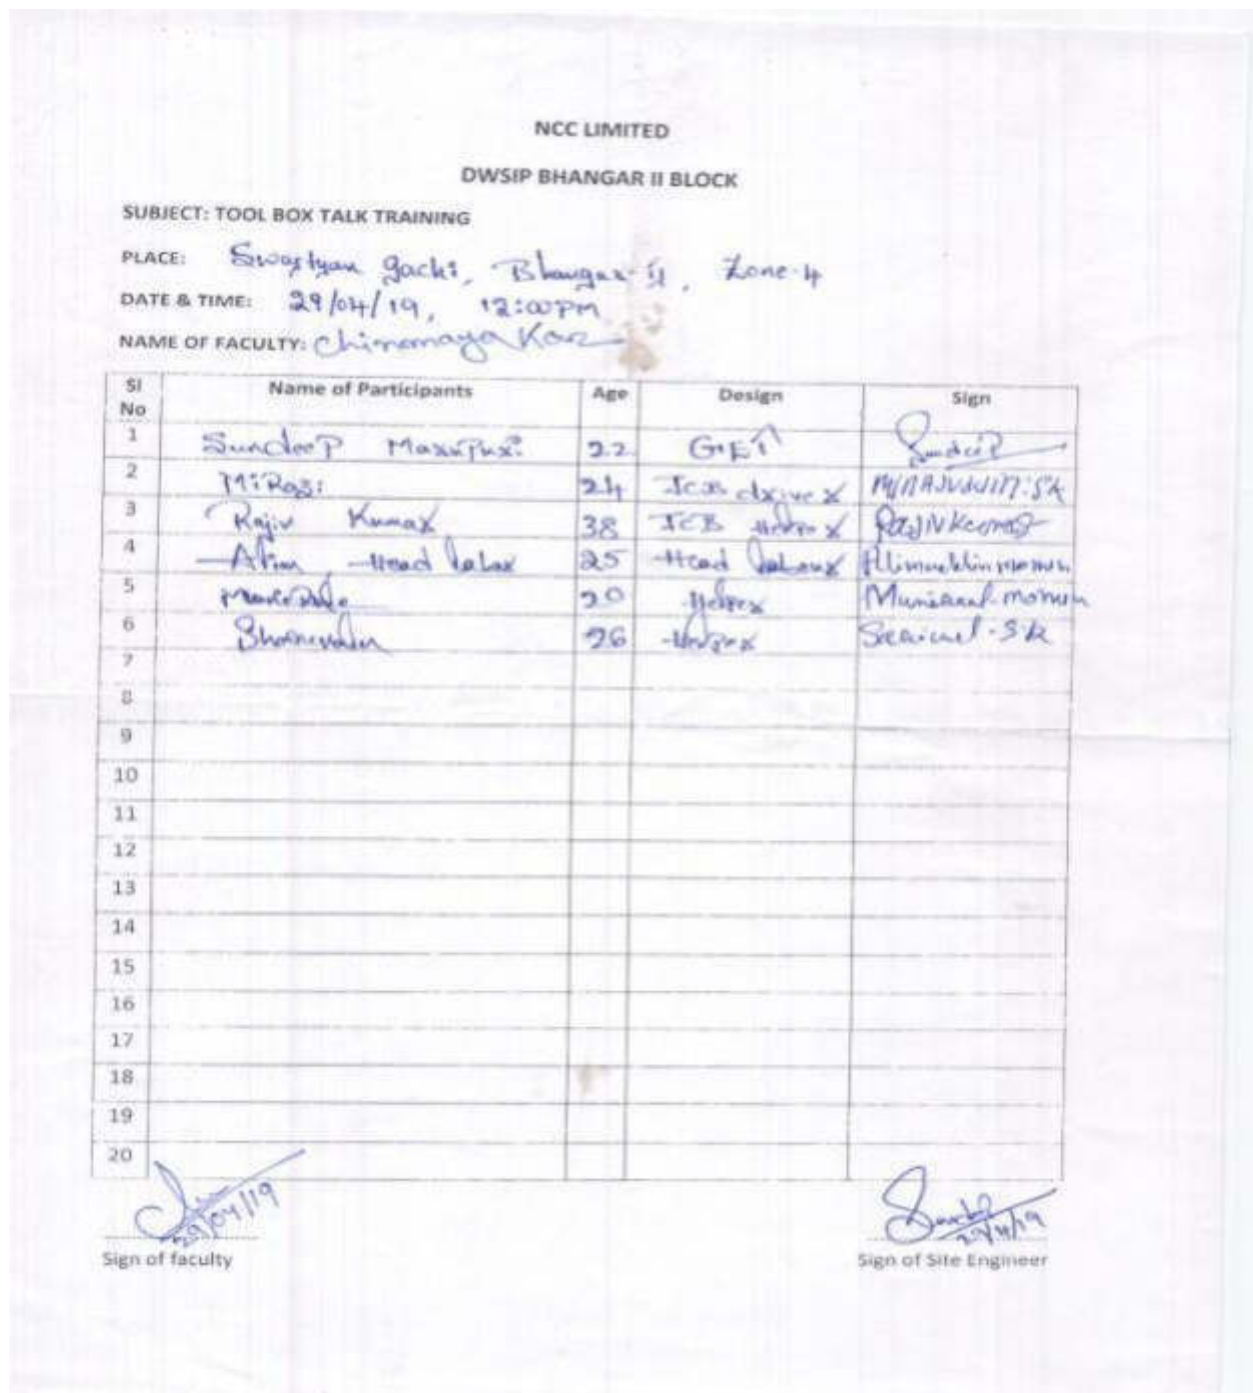 NCC LIMITED
DWSIP BHANGAR II BLOCK
SUBJECT: TOOL BOX TALK TRAINING
PLACE: Swastyan gachi, Bhangar-II, Zone-4
DATE & TIME: 29/04/19, 12:00PM
NAME OF FACULTY: Chinomaya Kar
Sl No Name of Participants Age Design Sign
1 Sundeep 22 GET Sundeep
2 24 JCB driver
3 Rajiv Kumar 38 JCB Helper Rajiv Kumar
4 Alim Head labar 25 Head labour
5 20 Helper
6 26 Helper
7
8
9
10
11
12
13
14
15
16
17
18
19
20
29/04/19 29/4/19
Sign of faculty Sign of Site Engineer